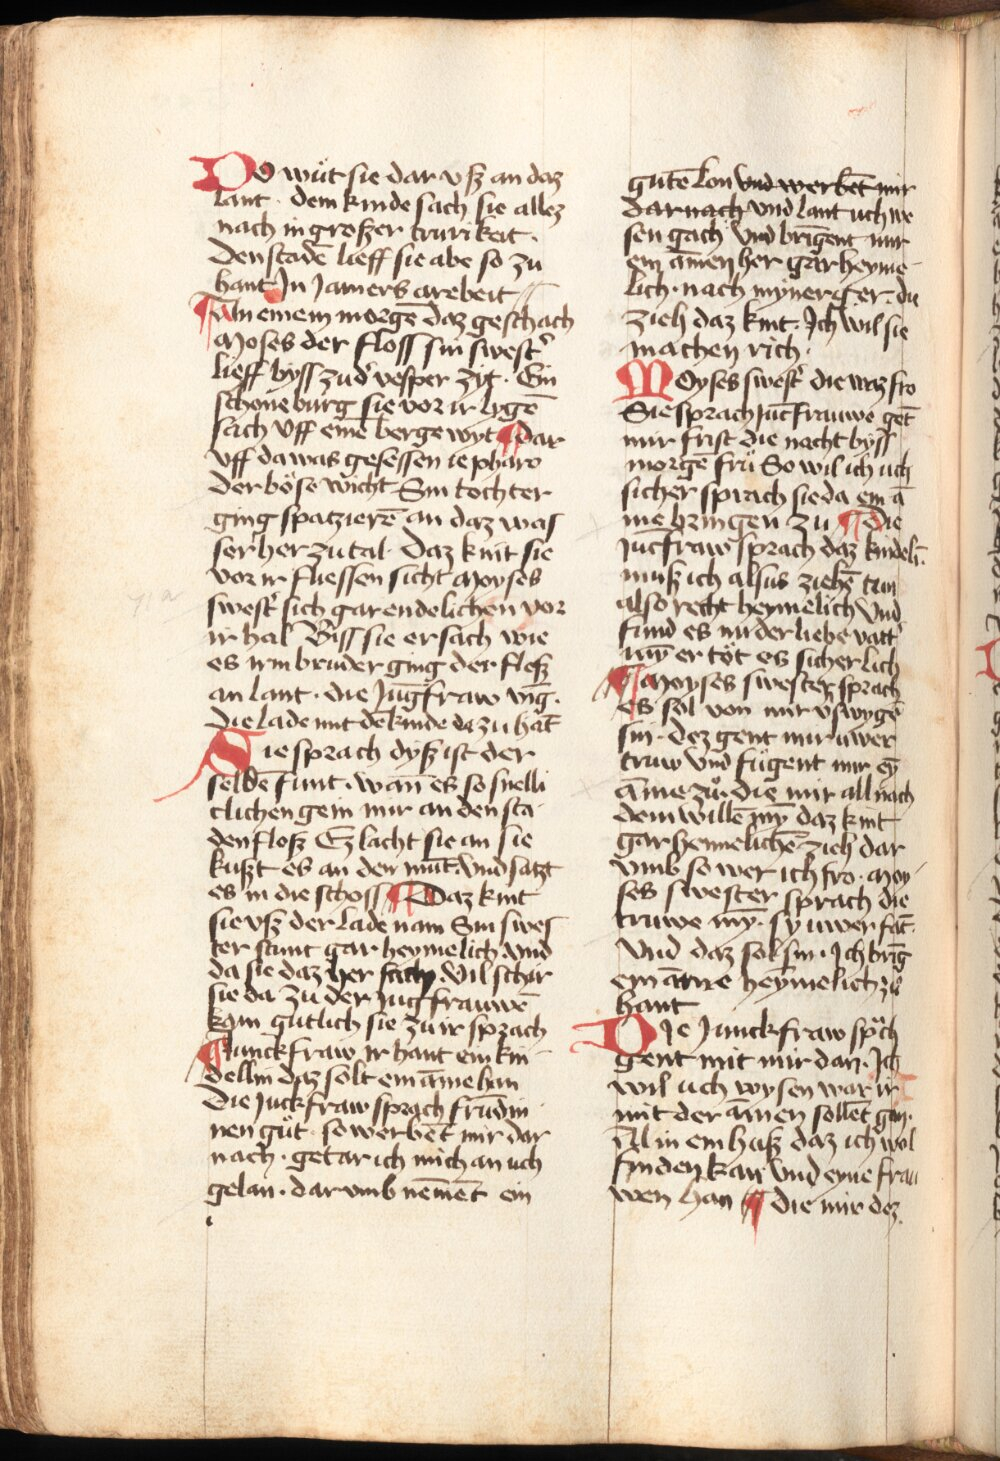 Do wuͦt sie dar vsz an daz
lant · dem kinde sach sie allez
nach in groszer trurikeit ·
Den stadē lieff sie abe so zu
hant In Jamers arebeit
¶ An einem morgē daz geschach
Moses der floss sin swestˀ
lieff byss zudˀ vesper zijt · Ein
schone burg sie vor ir lygē
sach Vff einē berge wyt ¶ Dar
vff da was gesessen ie pharo
der böse wicht Sin tochter
ging spatzierē an daz was
ser her zu tal · Daz kint sie
vor ir fliessen sicht Moyses
swestˀ sich gar endelichen vor
ir hal Biss sie ersach wie
es irm bruder ging der flosz
an lant · die Jūgfraw ving ·
die lade mit dē kinde da zu hāt
Sie sprach dysz ist der
seldē funt · wan̄ es so snelli
clichen gein mir an den sta
den flosz Ez lacht sie an sie
kuszt es an den mūt · vnd satzt
es in die schoss ¶ Daz kint
sie vsz der lade nam Sin swes
ter stunt gar heymelich vnd
da sie daz her sach · Vil schir
sie da zu der Jūgfrauwē
kam gutlich sie zu ir sprach
¶ Junckfraw ir hant ein kin
dellin daz solt ein āme han
Die Juckfraw sprach frūdin
nen guͦt · so werbēt mir dar
nach · getar ich mich an uch
gelan · dar vmb nēmēt ein
gutē lon vnd werbēt mir
darnach vnd lant uch we
sen gach vnd brīgent mir
ein āmen her gar heyme
lich · nach myner ger · du
zieh daz kint · Ich wil sie
machen rich ·
Moyses swestˀ die waz fro
Sie sprach Jūcfrauwe gēt
mir frist die nacht byss
morgē fruͤ So wil ich uch
sicher sprach sie da ein ā
me bringen zu ¶ Die
Jūcfraw sprach daz kindelī
musz ich alsus ziehē tun
also recht heymelich vnd
fund es mir der liebe vattˀ
myn er töt es sicherlich
¶ Moyses swester sprach
es sol von mir vˀswygē
sin · dez gent mir uwer
truw vnd fuͤgent mir ey
āme zuͦ · die mir all nach
dem willē my̅ daz kint
gar heimelichē zieh dar
vmb so wer ich fro · Moy
ses swester sprach die
truwe my̅ · sy uwer fāt
Vnd daz sol sin · Ich brīg
ein āme heymelich zuͦ
hant
Die Junckfraw sprͣch
gent mit mir dan · Ich
wil uch wysen war ir
mit der āmen sollēt gan ·
All in ein husz daz ich wol
finden kan vnd eyne frau
wen han ¶ Die mir dez